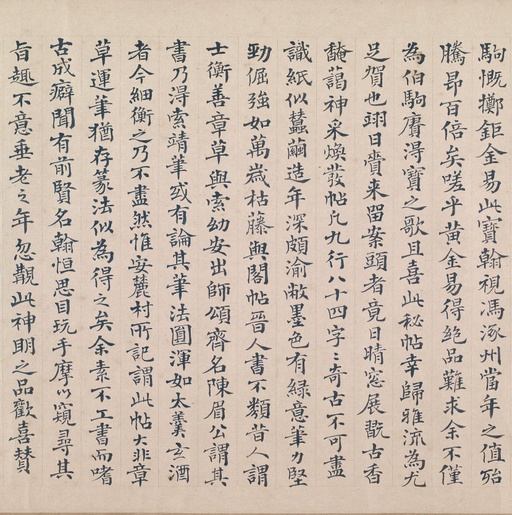 駒慨擲鉅金易此寶翰視馮涿州當年之值殆
騰昂百倍矣嗟乎黃金易得絕品難求余不僅
為伯駒賡得寶之歌且喜此秘帖幸歸雅流為尤
足賀也翊日賷来留案頭者竟日晴窓展翫古香
馣藹神采煥發帖凡九行八十四字字奇古不可盡
識紙似蠶繭造年深頗渝敝墨色有綠意筆力堅
勁倔強如萬歲枯藤與閣帖晉人書不類昔人謂
士衡善章草與索幼安出師頌齊名陳眉公謂其
書乃得索靖筆或有論其筆法圓渾如太羹玄酒
者今細衡之乃不盡然惟安麓村所記謂此帖大非章
草運筆猶存篆法似為得之矣余素不工書而嗜
古成癖聞有前賢名翰恒思目玩手摩以窺尋其
旨趣不意垂老之年忽覩此神明之品歡喜贊